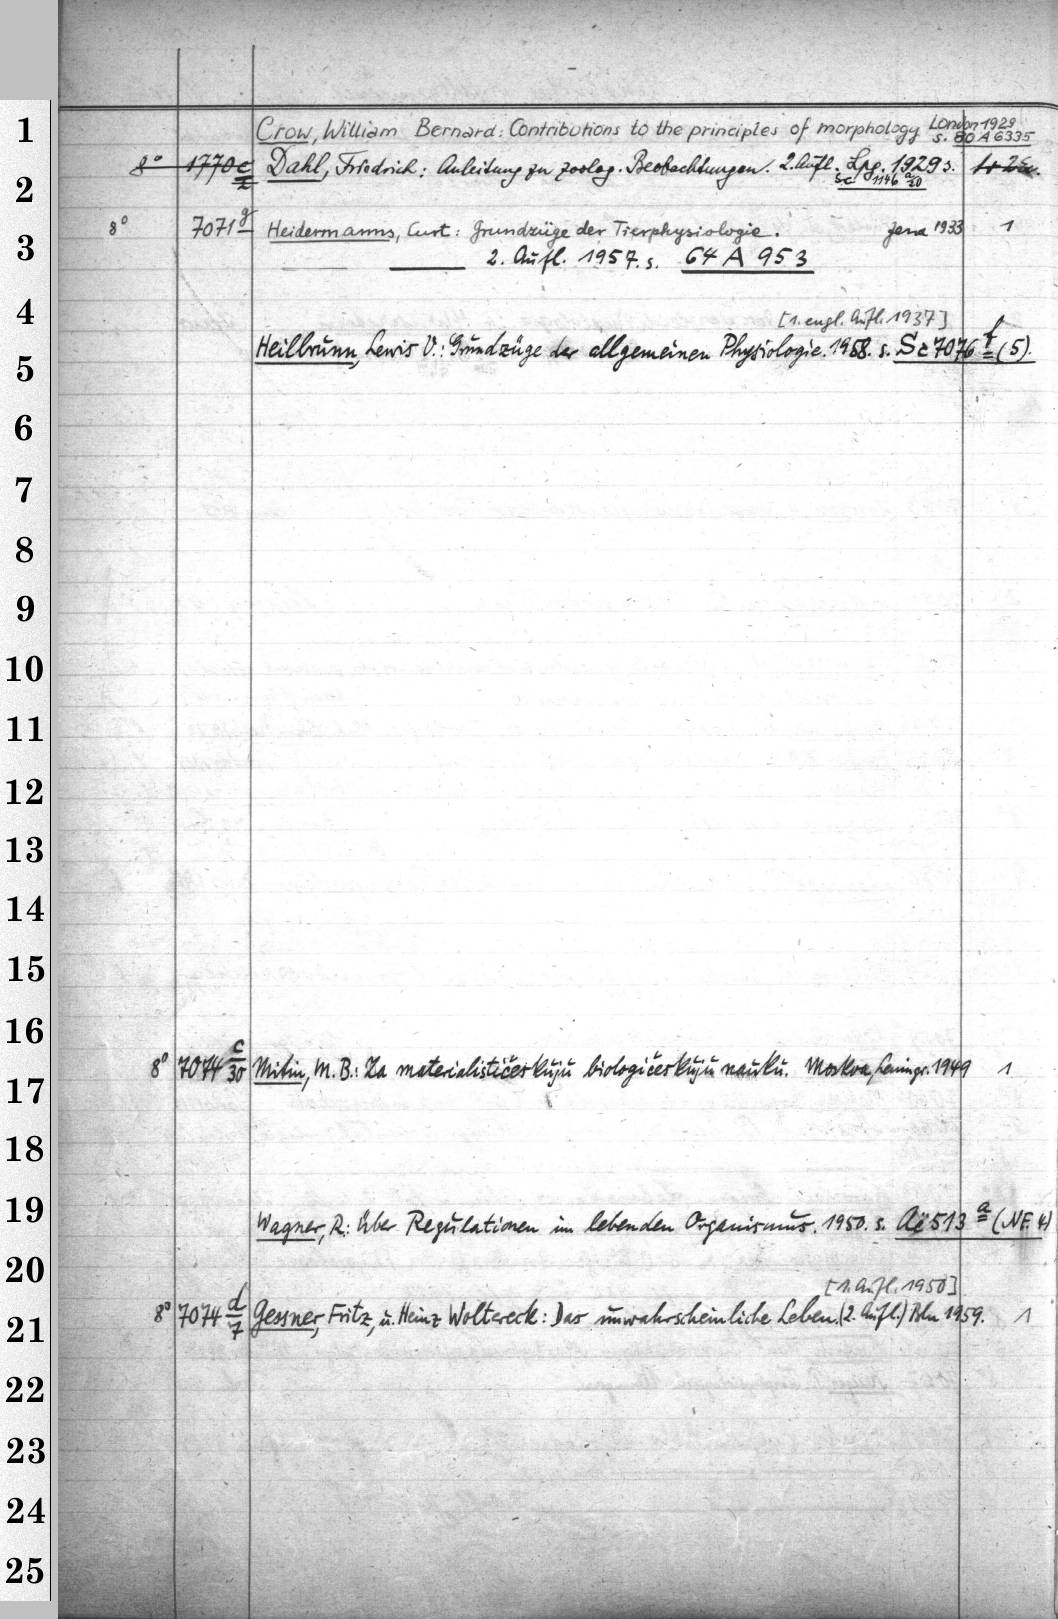 1 Crow, William Bernard: Contributions to the principles of morphology London 1929 s. 80 A 6335
2 8° 1770 c/2 Dahl, Friedrich: Anleitung zu zoolog. Beobachtungen. 2. Aufl. Lpg. 1929 s. Sc 1146 a/20
3 8° 7071 g Heidermanns, Curt: Grundzüge der Tierphysiologie. Jena 1933 1
2. Aufl. 1957. s. 64 A 953
4 [1. engl. Aufl. 1937]
5 Heilbrunn, Lewis V.: Grundzüge der allgemeinen Physiologie. 1958. s. Sc 7076 f (5).
6
7
8
9
10
11
12
13
14
15
16
17 8° 7074 c/30 Mitin, M. B.: Za materialističeskuju biologičeskuju nauku. Moskva, Leningr. 1949 1
18
19 Wagner, R.: Über Regulationen im lebenden Organismus. 1950. s. Aë 513 a (NF. 4)
20 [1. Aufl. 1950]
21 8° 7074 d/7 Gessner, Fritz, u. Heinz Woltereck: Das unwahrscheinliche Leben. (2. Aufl.) Bln 1959. 1
22
23
24
25